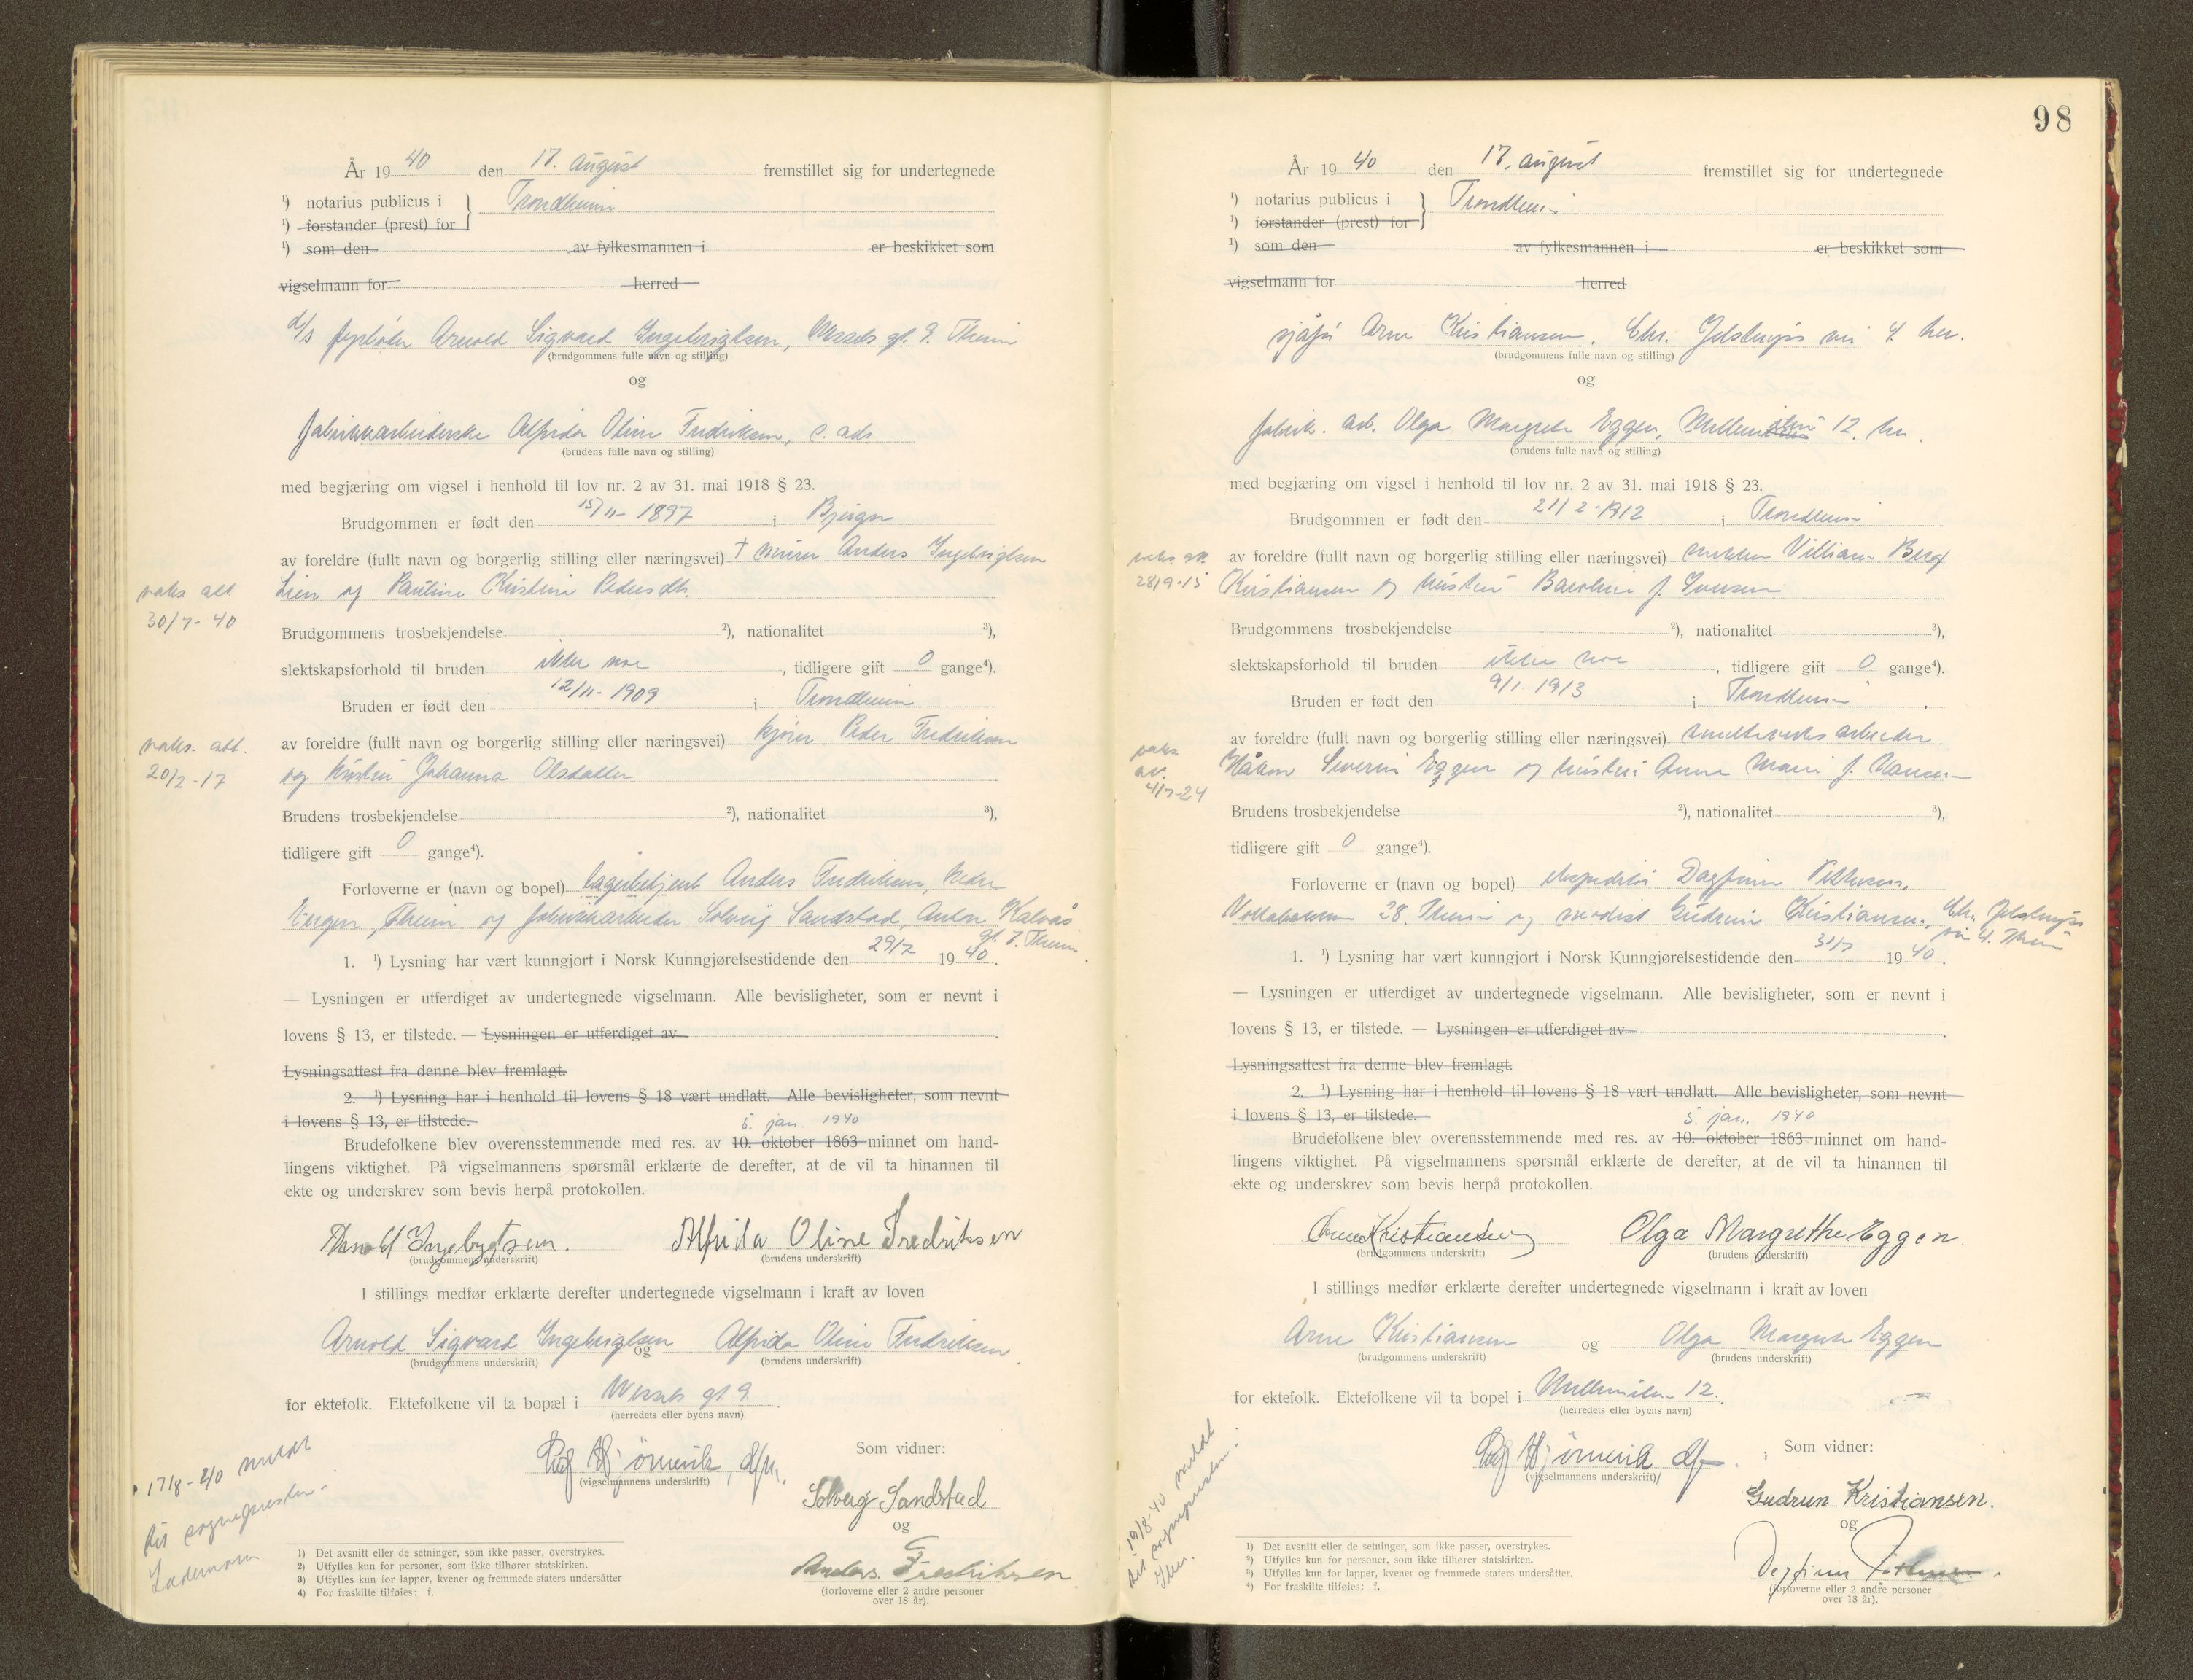 År 19 40 den 17. august fremstillet sig for undertegnede
¹) notarius publicus i Trondheim
¹) forstander (prest) for
¹) som den av fylkesmannen i er beskikket som
vigselmann for herred
Arnold Sigvard Ingebrigtsen, Wessels gt. 9. Theim
(brudgommens fulle navn og stilling)
og
fabrikkarbeiderske Alfrida Oline Fredriksen, s. ads
(brudens fulle navn og stilling)
med begjæring om vigsel i henhold til lov nr. 2 av 31. mai 1918 § 23.
Brudgommen er født den 15/11- 1897 i Bjugn
av foreldre (fullt navn og borgerlig stilling eller næringsvei) † murer Anders Ingebrigtsen
Lien og Pauline Kristine Pedersdtr.
vaks att.
30/7- 40
Brudgommens trosbekjendelse ²), nationalitet ³),
slektskapsforhold til bruden ikke noe, tidligere gift 0 gange⁴).
Bruden er født den 12/11- 1909 i Trondheim
av foreldre (fullt navn og borgerlig stilling eller næringsvei) kjører Peder Fredriksen
og hustru Johanna Olsdatter
vaks. att.
20/2-17
Brudens trosbekjendelse ²), nationalitet ³),
tidligere gift 0 gange⁴).
Forloverne er (navn og bopel) lagerbetjent Anders Fredriksen, Nedre
, Theim og fabrikkarbeider Solveig Sandstad, Anton Kalvås
gt. 7. Theim.
1. ¹) Lysning har vært kunngjort i Norsk Kunngjørelsestidende den 29/7 19 40.
— Lysningen er utferdiget av undertegnede vigselmann. Alle bevisligheter, som er nevnt i
lovens § 13, er tilstede. — Lysningen er utferdiget av
Lysningsattest fra denne blev fremlagt.
2. ¹) Lysning har i henhold til lovens § 18 vært undlatt. Alle bevisligheter, som nevnt
i lovens § 13, er tilstede.
5. jan. 1940
Brudefolkene blev overensstemmende med res. av 10. oktober 1863 minnet om hand-
lingens viktighet. På vigselmannens spørsmål erklærte de derefter, at de vil ta hinannen til
ekte og underskrev som bevis herpå protokollen.
Arnold Ingebrigtsen. Alfrida Oline Fredriksen
(brudgommens underskrift) (brudens underskrift)
I stillings medfør erklærte derefter undertegnede vigselmann i kraft av loven
Arnold Sigvard Ingebrigtsen og Alfrida Oline Fredriksen
(brudgommens underskrift) (brudens underskrift)
for ektefolk. Ektefolkene vil ta bopæl i Wessels gt. 9.
(herredets eller byens navn)
Som vidner:
(vigselmannens underskrift)
Solveig Sandstad
og
Anders. Fredriksen
(forloverne eller 2 andre personer
over 18 år).
17/8-40 meldt
til sognepresten
Lademoen
1) Det avsnitt eller de setninger, som ikke passer, overstrykes.
2) Utfylles kun for personer, som ikke tilhører statskirken.
3) Utfylles kun for lapper, kvener og fremmede staters undersåtter
4) For fraskilte tilføies: f.
98
År 19 40 den 17. august fremstillet sig for undertegnede
¹) notarius publicus i Trondheim
¹) forstander (prest) for
¹) som den av fylkesmannen i er beskikket som
vigselmann for herred
sjåfør Arne Kristiansen, Chr. Jelstrups vei 4. her.
(brudgommens fulle navn og stilling)
og
fabrik. arb. Olga Margrete Eggen, 12. her.
(brudens fulle navn og stilling)
med begjæring om vigsel i henhold til lov nr. 2 av 31. mai 1918 § 23.
Brudgommen er født den 21/2-1912 i Trondheim
av foreldre (fullt navn og borgerlig stilling eller næringsvei) snekker Villiam Berg
Kristiansen og hustru Baroline f. Iversen
vaks. att.
28/9-15
Brudgommens trosbekjendelse ²), nationalitet ³),
slektskapsforhold til bruden ikke noe, tidligere gift 0 gange⁴).
Bruden er født den 9/1. 1913 i Trondheim.
av foreldre (fullt navn og borgerlig stilling eller næringsvei) smelteverksarbeider
Håkon Severin Eggen og hustru Anna Marie f. Hansen
vaks
att.
4/7-24
Brudens trosbekjendelse ²), nationalitet ³),
tidligere gift 0 gange⁴).
Forloverne er (navn og bopel) ekspeditør Dagfinn
Vollabakken 28. Theim og modist Gudrun Kristiansen, Chr. Jelstrups
vei 4. Theim
1. ¹) Lysning har vært kunngjort i Norsk Kunngjørelsestidende den 31/7 19 40.
— Lysningen er utferdiget av undertegnede vigselmann. Alle bevisligheter, som er nevnt i
lovens § 13, er tilstede. — Lysningen er utferdiget av .
Lysningsattest fra denne blev fremlagt.
2. ¹) Lysning har i henhold til lovens § 18 vært undlatt. Alle bevisligheter, som nevnt
i lovens § 13, er tilstede.
5. jan. 1940
Brudefolkene blev overensstemmende med res. av 10. oktober 1863 minnet om hand-
lingens viktighet. På vigselmannens spørsmål erklærte de derefter, at de vil ta hinannen til
ekte og underskrev som bevis herpå protokollen.
Arne Kristiansen Olga Margrethe Eggen.
(brudgommens underskrift) (brudens underskrift)
I stillings medfør erklærte derefter undertegnede vigselmann i kraft av loven
Arne Kristiansen og Olga Margrete Eggen
(brudgommens underskrift) (brudens underskrift)
for ektefolk. Ektefolkene vil ta bopel i 12.
(herredets eller byens navn)
Som vidner:
(vigselmannens underskrift)
Gudrun Kristiansen.
og
Dagfinn
(forloverne eller 2 andre personer
over 18 år).
19/8-40 meldt
til sognepresten i
Ilen.
1) Det avsnitt eller de setninger, som ikke passer, overstrykes.
2) Utfylles kun for personer, som ikke tilhører statskirken.
3) Utfylles kun for lapper, kvener og fremmede staters undersåtter.
4) For fraskilte tilføies: f.